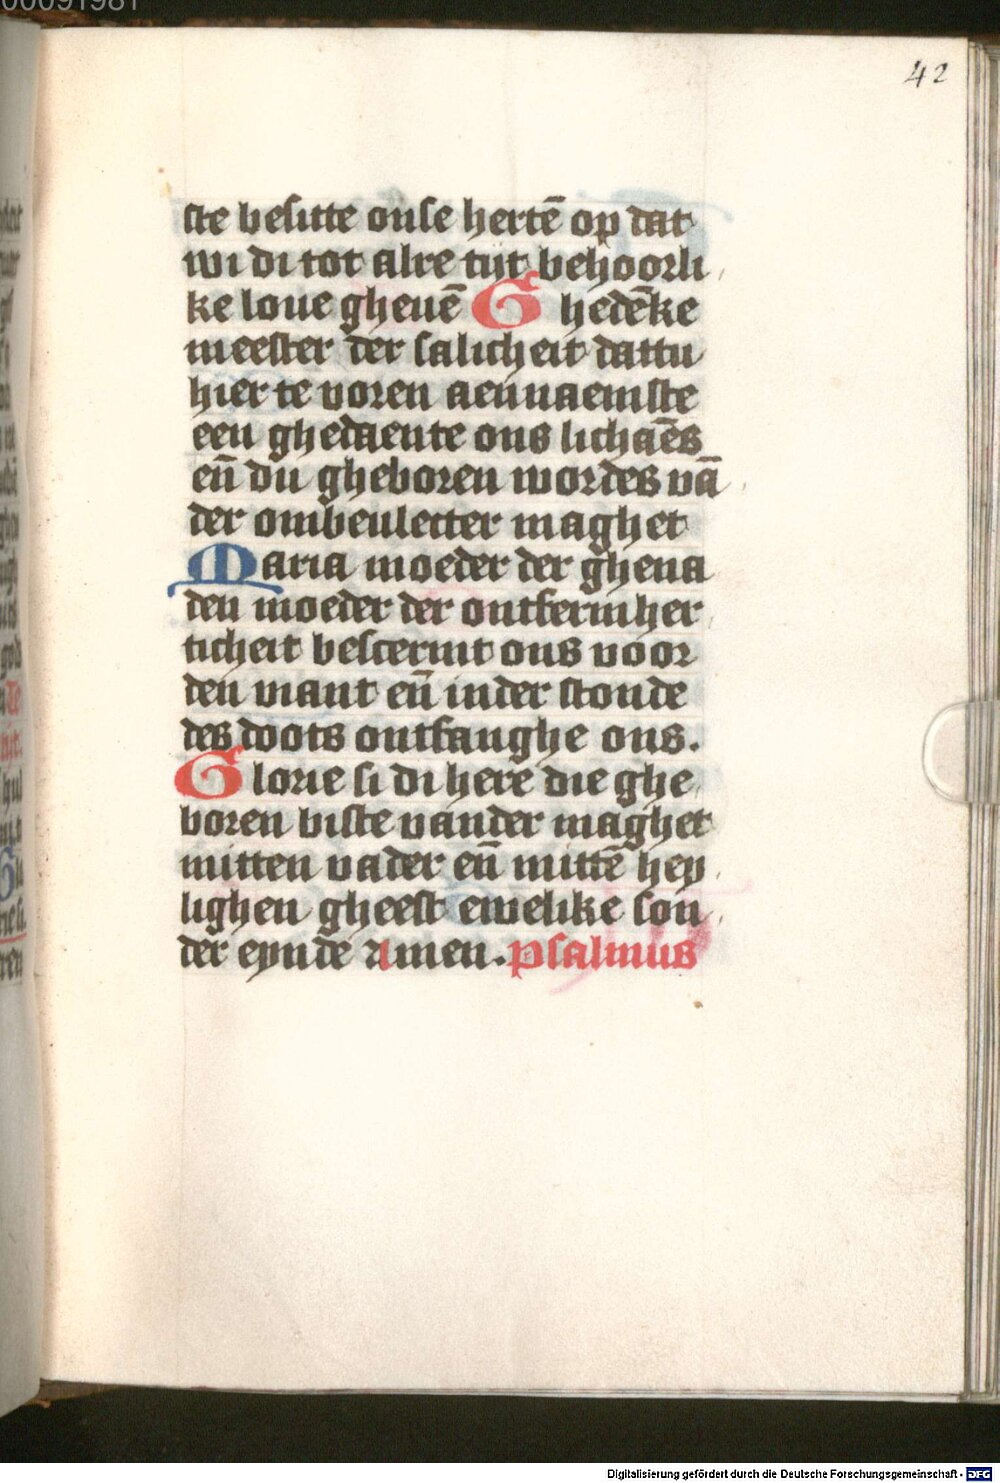 00091981
42
ste besitte onse hertē op dat
wi di tot alre tijt behoorli
ke loue gheuē Ghedēke
meester der salicheit dattu
hier te voren aennaemste
een ghedaente ons lichaēs
en̄ du gheboren wordes vā
der ombeulecter maghet
Maria moeder der ghena
den moeder der ontfermher
ticheit bescermt ons voor
den viant en̄ inder stonde
des doots ontfanghe ons.
Glorie si di here die ghe
boren biste vander maghet
mitten vader en̄ mittē hey
lighen gheest ewelike son
der eynde amen. psalmus
Digitalisierung gefördert durch die Deutsche Forschungsgemeinschaft - DFG